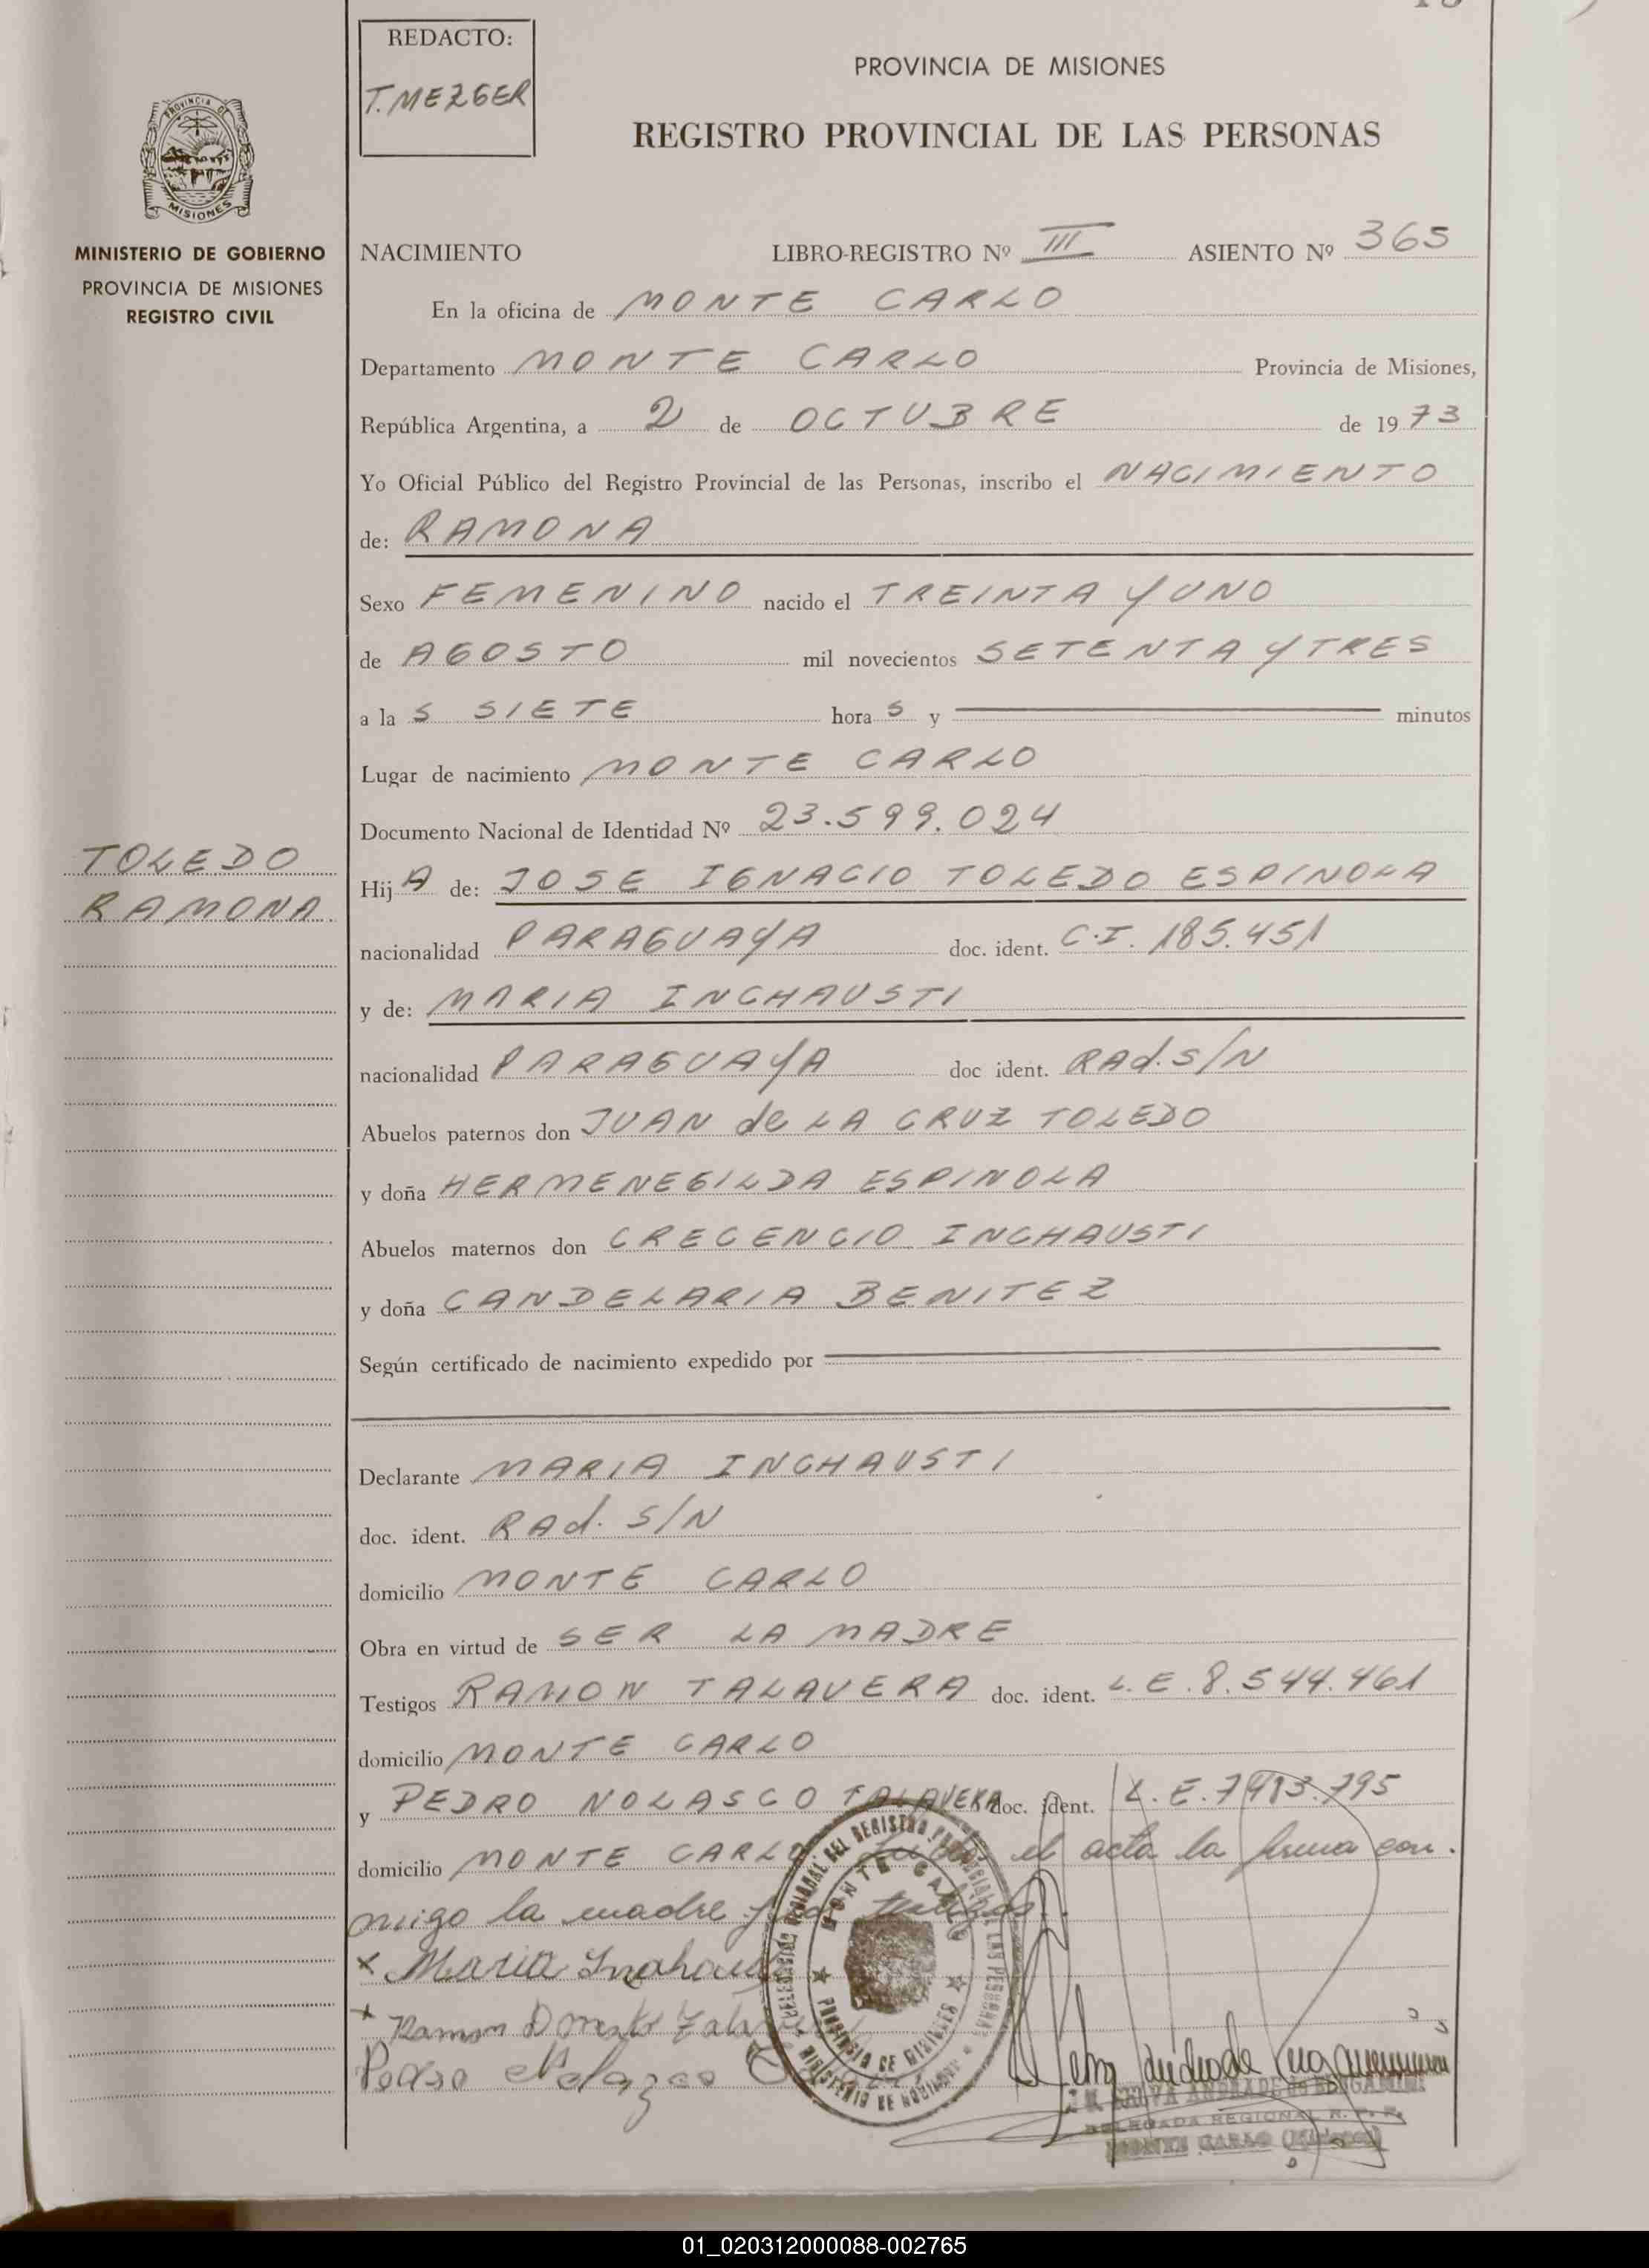 REDACTO:
T. MEZGER
PROVINCIA DE MISIONES
REGISTRO PROVINCIAL DE LAS PERSONAS
PROVINCIA DE
MISIONES
MINISTERIO DE GOBIERNO
PROVINCIA DE MISIONES
REGISTRO CIVIL
NACIMIENTO LIBRO-REGISTRO Nº III ASIENTO Nº 365
En la oficina de MONTE CARLO
Departamento MONTE CARLO Provincia de Misiones,
República Argentina, a 2 de OCTUBRE de 1973
Yo Oficial Público del Registro Provincial de las Personas, inscribo el NACIMIENTO
de: RAMONA
Sexo FEMENINO nacido el TREINTA Y UNO
de AGOSTO mil novecientos SETENTA Y TRES
a las SIETE horas y minutos
Lugar de nacimiento MONTE CARLO
Documento Nacional de Identidad Nº 23.599.024
TOLEDO
RAMONA
HijA de: JOSE IGNACIO TOLEDO ESPINOLA
nacionalidad PARAGUAYA doc. ident. C.I. 185.451
y de: MARIA INCHAUSTI
nacionalidad PARAGUAYA doc ident. RAd. S/N
Abuelos paternos don JUAN de LA CRUZ TOLEDO
y doña HERMENEGILDA ESPINOLA
Abuelos maternos don CRECENCIO INCHAUSTI
y doña CANDELARIA BENITEZ
Según certificado de nacimiento expedido por
Declarante MARIA INCHAUSTI
doc. ident. RAd. S/N
domicilio MONTE CARLO
Obra en virtud de SER LA MADRE
Testigos RAMON TALAVERA doc. ident. L.E. 8.544.461
domicilio MONTE CARLO
y PEDRO NOLASCO TALAVERA doc. ident. L.E. 7.493.795
domicilio MONTE CARLO. el acta la firma con-
migo la madre testigos.
x Maria
x Ramon
Pedro
MONTE CARLO
PROVINCIA DE MISIONES
DELEGADA REGIONAL R. P. P.
01_020312000088-002765